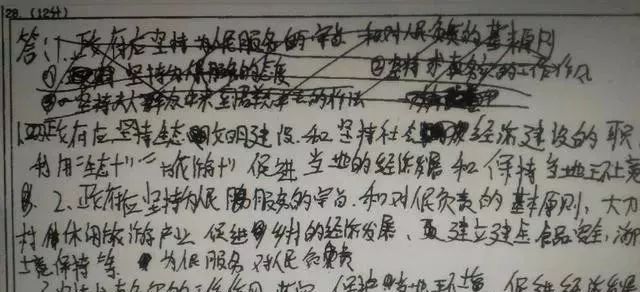 28.（12分）
答：1.政府应坚持为人民服务的宗旨 和对人民负责的基本原则
① 坚持为人民服务的态度 ②坚持求真务实的工作作风
③ 坚持从群众中来到群众中去的 方法
1. 政府应坚持生态文明建设 和坚持社会 经济建设的职
利用"生态+""旅游+" 促进当地的经济发展和保持当地环境
2.政府应坚持为人民服务的宗旨.和对人民负责的基本原则，大力
村 休闲旅游产业 促进乡村的经济发展、建立健全食品安全,
境保持等 为人民服务 对人民负责
的工作作风 保护当地环境 促进经济发展